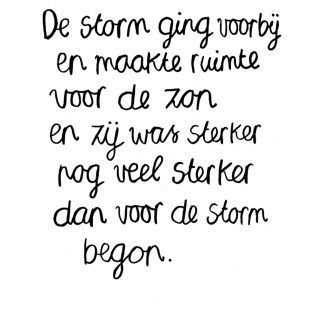 De storm ging voorbij
en maakte ruimte
voor de zon
en zij was sterker
nog veel sterker
dan voor de storm
begon.